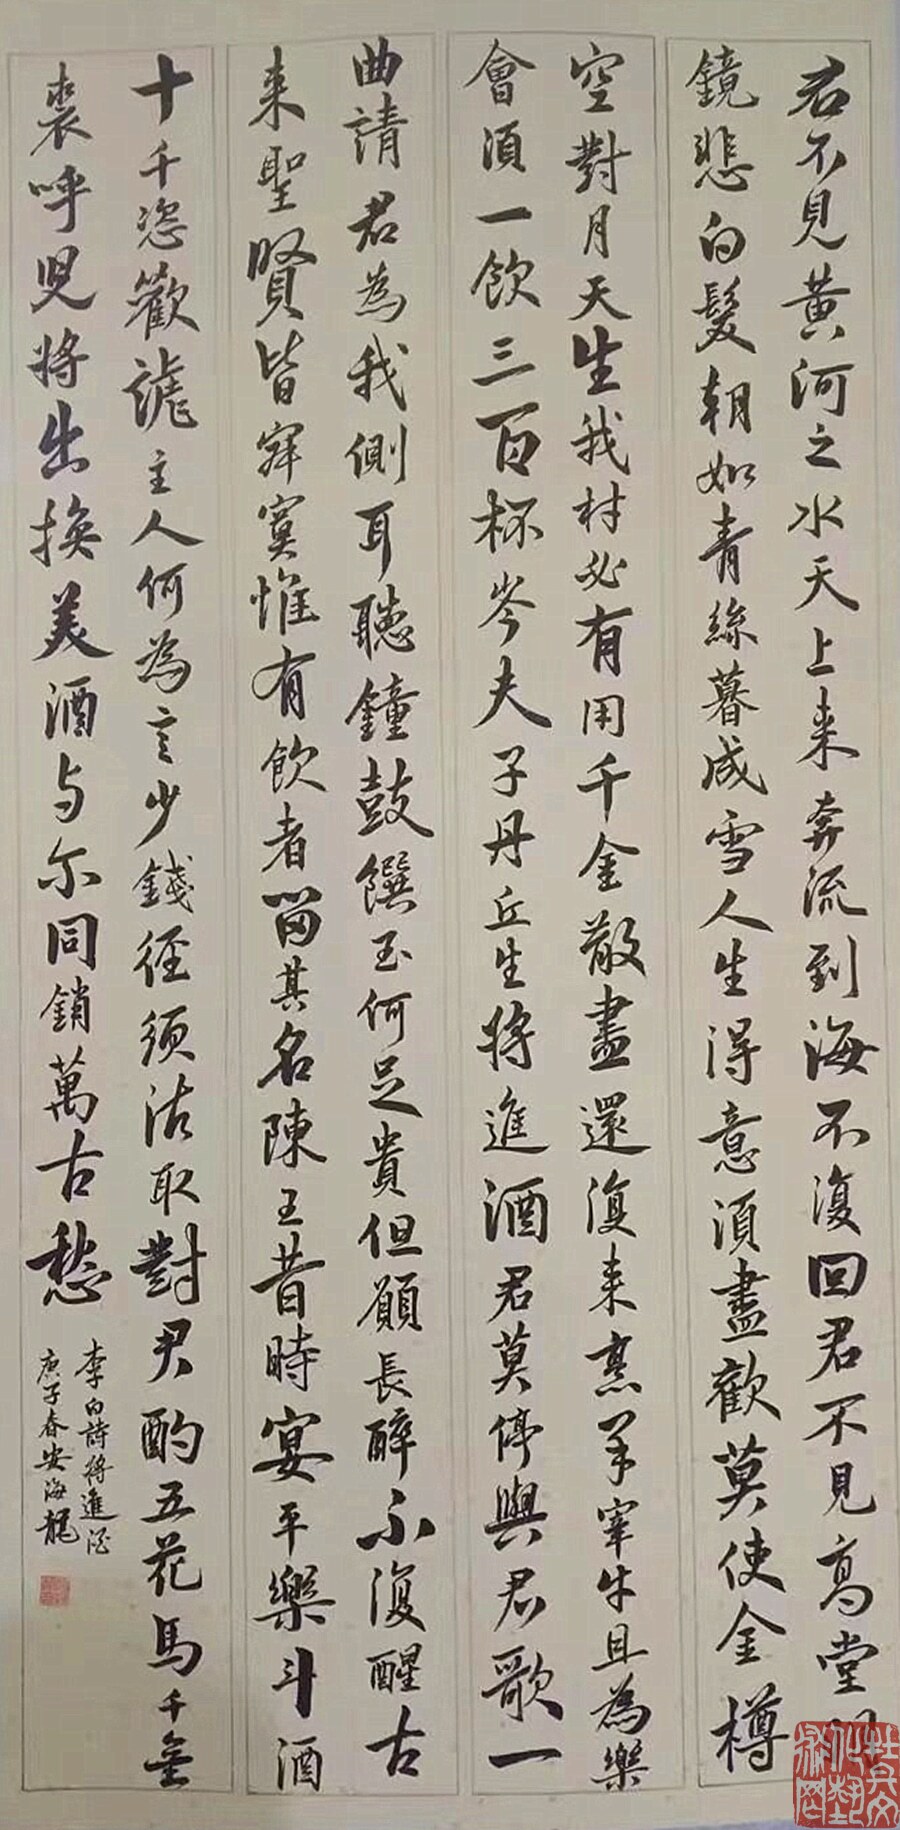 君不見黃河之水天上来奔流到海不復回君不見高堂明
鏡悲白髮朝如青絲暮成雪人生得意須盡歡莫使金樽
空對月天生我材必有用千金散盡還復来烹羊宰牛且為樂
會須一飲三百杯岑夫子丹丘生将進酒君莫停與君歌一
曲請君為我側耳聽鐘鼓饌玉何足貴但願長醉不復醒古
来聖賢皆寂寞惟有飲者留其名陳王昔時宴平樂斗酒
十千恣歡謔主人何為言少錢徑須沽取對君酌五花馬千金
裘呼兒将出換美酒与尔同銷萬古愁
李白詩将進酒
庚子春安海龍